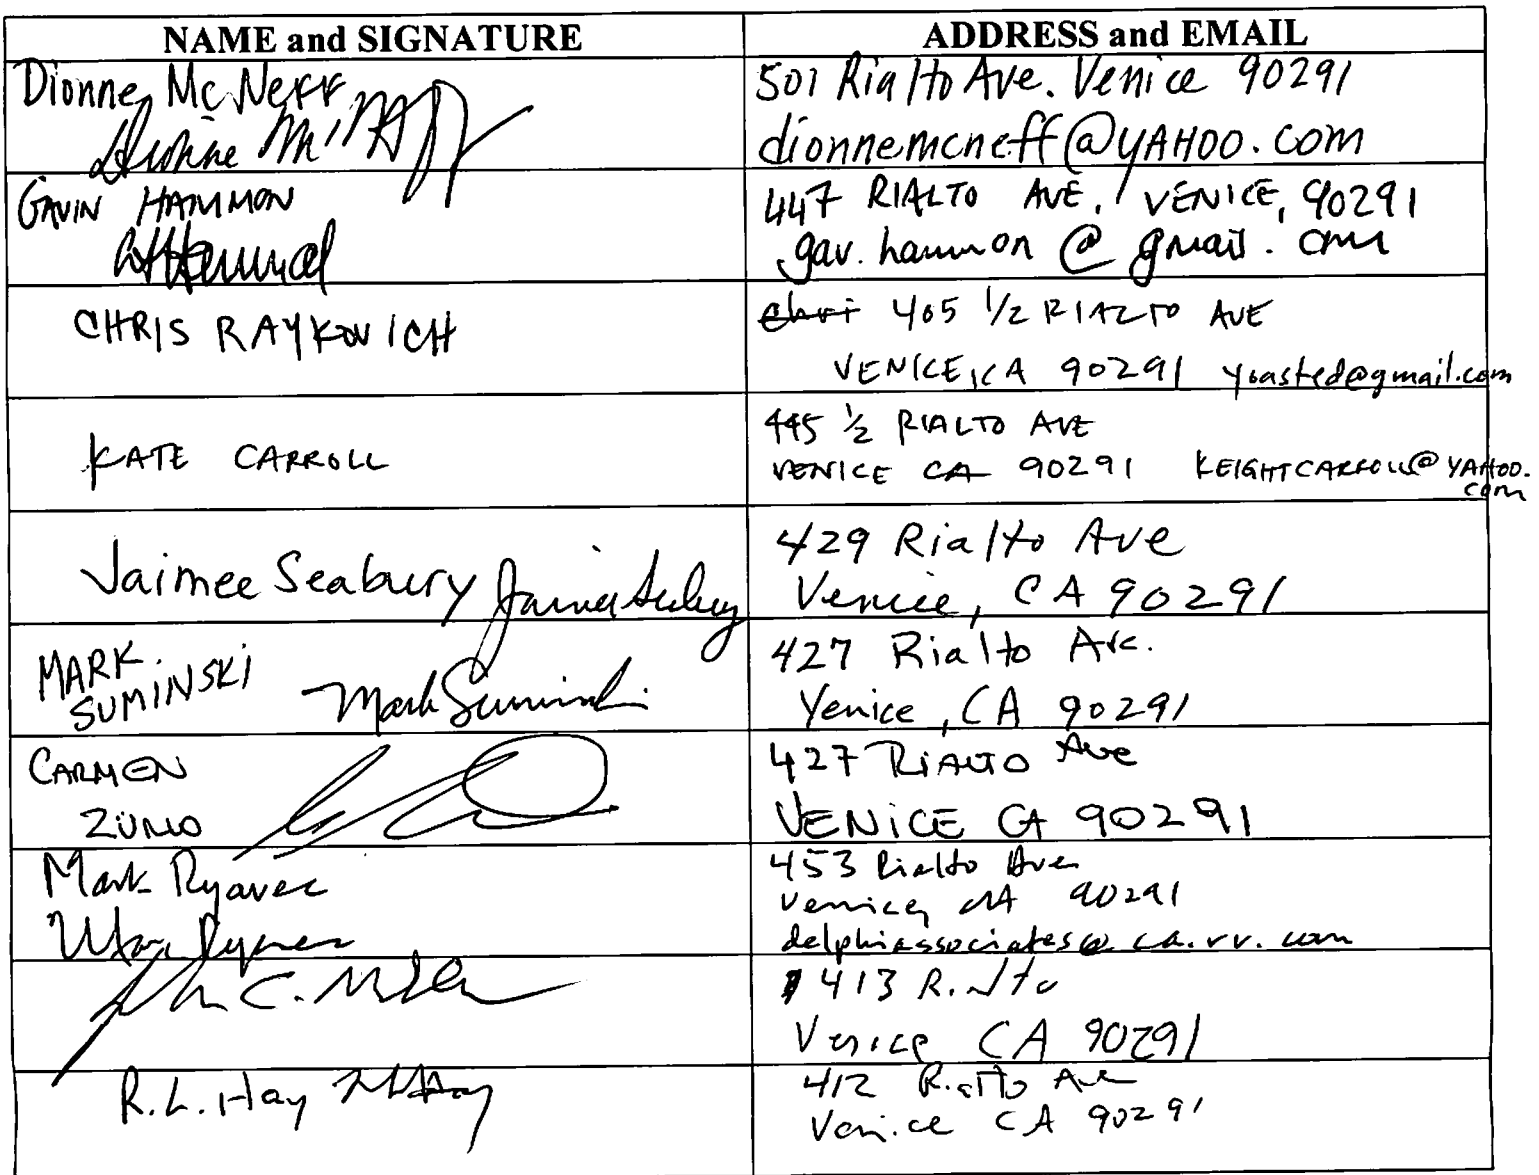 NAME and SIGNATURE
ADDRESS and EMAIL
Dionne McNeff
Dionne McNeff
501 Rialto Ave. Venice 90291
dionnemcneff@YAHOO.com
GAVIN HAMMON
447 RIALTO AVE, VENICE, 90291
gav.hammon @ gmail.com
CHRIS RAYKOVICH
405 1/2 RIALTO AVE
VENICE, CA 90291 yoasted@gmail.com
KATE CARROLL
445 1/2 RIALTO AVE
VENICE CA 90291 KEIGHTCARROLL@YAHOO.
com
Jaimee Seabury
429 Rialto Ave
Venice, CA 90291
MARK
SUMINSKI Mark Suminski
427 Rialto Ave.
Venice, CA 90291
CARMEN
ZULLO
427 RIALTO Ave
VENICE CA 90291
Mark Ryavec
Mark Ryavec
453 Rialto Ave
Venice, CA 90291
delphiassociates@ca.rr.com
413 Rialto
Venice CA 90291
R.L. Hay
412 Rialto Ave
Venice CA 90291